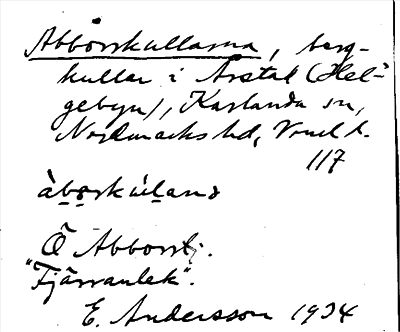 Abborrkullarna, berg-
kullar i Årstal (Hel-
gebyn), Karlanda sn,
Nordmarks hd, Vrml l.
117
àbo̱rkúḻanə
Ö Abborrtj.
"Fjärranlek".
E. Andersson 1934